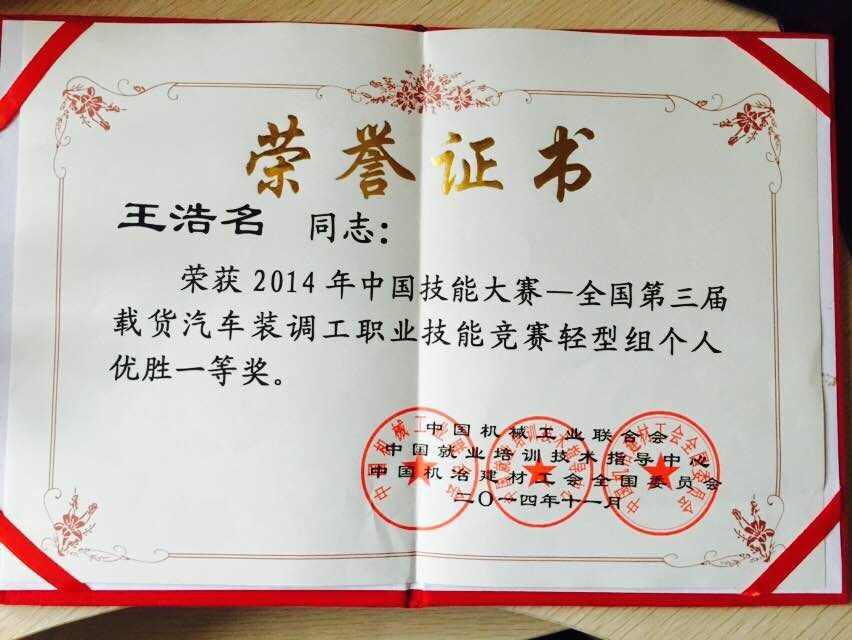 荣誉证书
王浩名 同志：
荣获2014年中国技能大赛—全国第三届
载货汽车装调工职业技能竞赛轻型组个人
优胜一等奖。
中国机械工业联合会
中国就业培训技术指导中心
中国机冶建材工会全国委员会
二〇一四年十一月
中国机械工业联合会